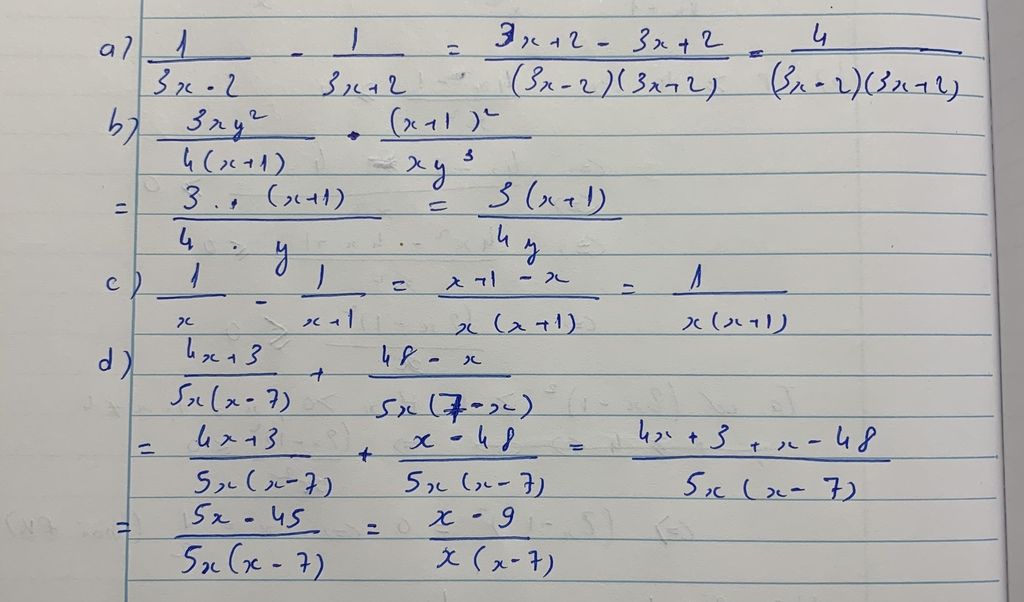 a) 1/(3x - 2) - 1/(3x+2) = (3x+2 - 3x+2)/((3x-2)(3x+2)) = 4/((3x-2)(3x+2))
b) 3xy²/(4(x+1)) . (x+1)²/(xy³)
= (3 . (x+1))/(4 . y) = 3(x+1)/(4y)
c) 1/x - 1/(x+1) = (x+1 - x)/(x(x+1)) = 1/(x(x+1))
d) (4x+3)/(5x(x-7)) + (48 - x)/(5x(7-x))
= (4x+3)/(5x(x-7)) + (x - 48)/(5x(x-7)) = (4x+3+x-48)/(5x(x-7))
= (5x - 45)/(5x(x-7)) = (x - 9)/(x(x-7))